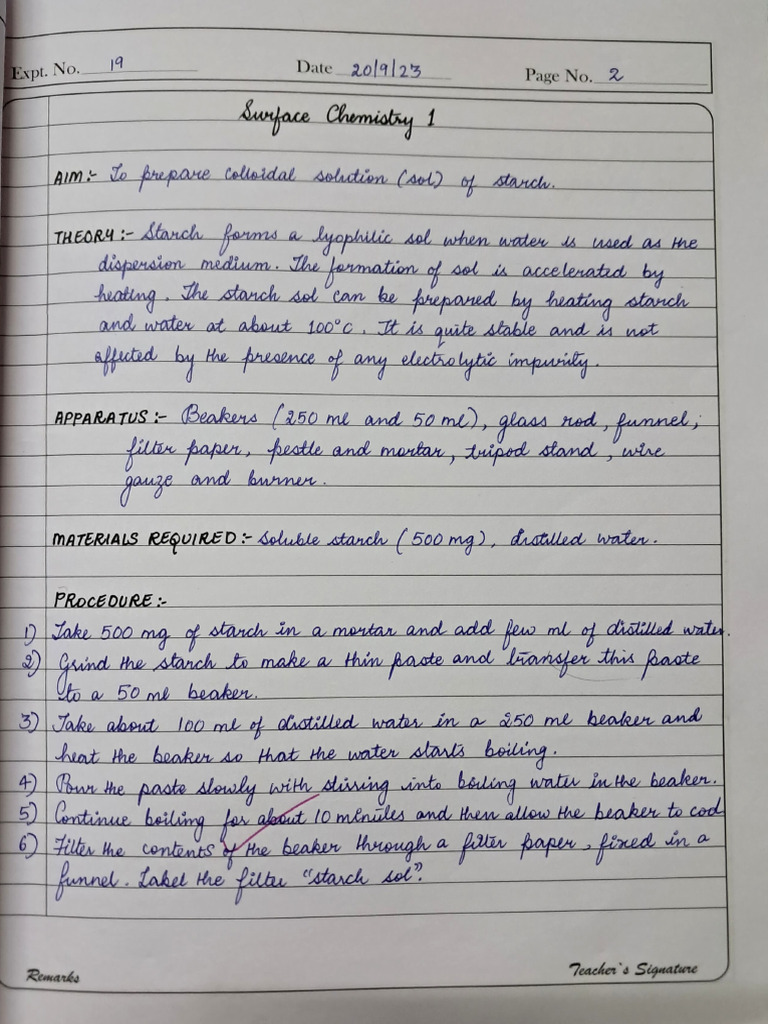 Expt. No. 19 Date 20/9/23 Page No. 2
Surface Chemistry 1
AIM:- To prepare colloidal solution (sol) of starch.
THEORY:- Starch forms a lyophilic sol when water is used as the
dispersion medium. The formation of sol is accelerated by
heating. The starch sol can be prepared by heating starch
and water at about 100°C. It is quite stable and is not
affected by the presence of any electrolytic impurity.
APPARATUS:- Beakers (250 ml and 50 ml), glass rod, funnel,
filter paper, pestle and mortar, tripod stand, wire
gauze and burner.
MATERIALS REQUIRED:- Soluble starch (500 mg), distilled water.
PROCEDURE:-
1) Take 500 mg of starch in a mortar and add few ml of distilled water.
2) Grind the starch to make a thin paste and transfer this paste
to a 50 ml beaker.
3) Take about 100 ml of distilled water in a 250 ml beaker and
heat the beaker so that the water starts boiling.
4) Pour the paste slowly with stirring into boiling water in the beaker.
5) Continue boiling for about 10 minutes and then allow the beaker to cool
6) Filter the contents of the beaker through a filter paper, fixed in a
funnel. Label the filter "starch sol".
Remarks Teacher's Signature